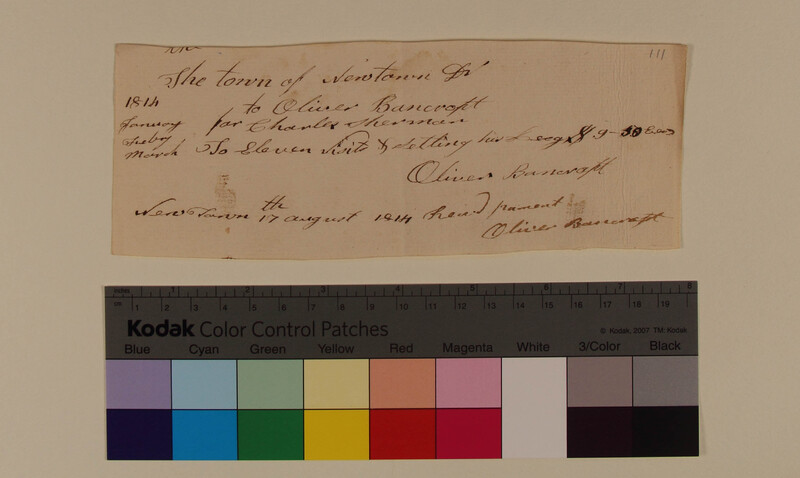 111
The town of Newtown Dr
1814
to Oliver Bancroft
January
for Charles Sherman
Feby
March
To Eleven visits & setting his Leg $ 9-50
Oliver Bancroft
New Town 17th august 1814 Recd pament
Oliver Bancroft
inches 1 2 3 4 5 6 7 8
cm 1 2 3 4 5 6 7 8 9 10 11 12 13 14 15 16 17 18 19
Kodak Color Control Patches
© Kodak, 2007 TM: Kodak
Blue Cyan Green Yellow Red Magenta White 3/Color Black